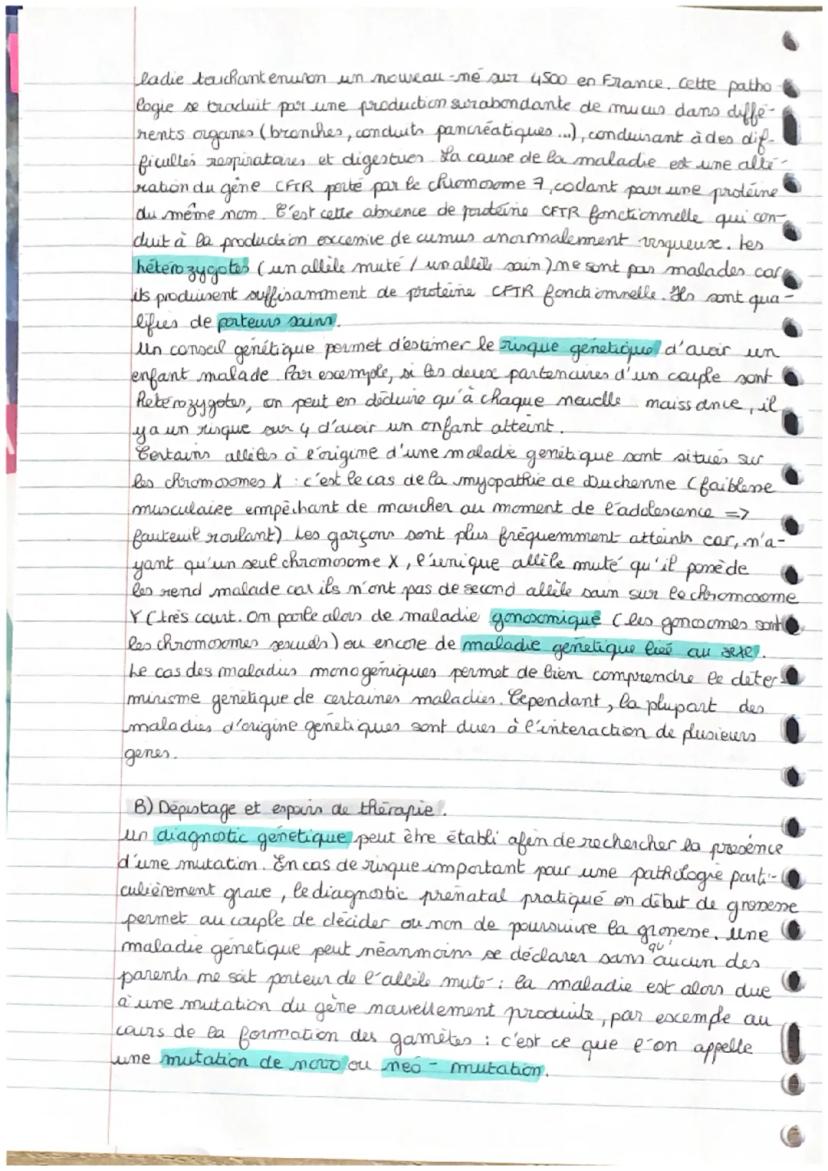 ladie touchant environ un nouveau-né sur 4500 en France. Cette patho-
logie se traduit par une production surabondante de mucus dans diffé-
rents organes (bronches, conduits pancréatiques ...), conduisant à des dif-
ficultés respiratoires et digestives. La cause de la maladie est une alté-
ration du gène CFTR porté par le chromosome 7, codant pour une protéine
du même nom. C'est cette absence de protéine CFTR fonctionnelle qui con-
duit à la production excessive de cumus anormalement visqueuse. Les
hétérozygotes (un allèle muté / un allèle sain) ne sont pas malades car
ils produisent suffisamment de protéine CFTR fonctionnelle. Ils sont qua-
lifiés de porteurs sains.
Un conseil génétique permet d'estimer le risque génétique d'avoir un
enfant malade. Par exemple, si les deux partenaires d'un couple sont
hétérozygotes, on peut en déduire qu'à chaque nouvelle naissance, il
y a un risque sur 4 d'avoir un enfant atteint.
Certains allèles à l'origine d'une maladie génétique sont situés sur
les chromosomes X : c'est le cas de la myopathie de Duchenne (faiblesse
musculaire empêchant de marcher au moment de l'adolescence =>
fauteuil roulant) Les garçons sont plus fréquemment atteints car, n'a-
yant qu'un seul chromosome X, l'unique allèle muté qu'il possède
les rend malade car ils n'ont pas de second allèle sain sur le chromosome
Y (très court. On parle alors de maladie gonosomique (les gonosomes sont
les chromosomes sexuels) ou encore de maladie génétique liée au sexe.
Le cas des maladies monogéniques permet de bien comprendre le déter-
minisme génétique de certaines maladies. Cependant, la plupart des
maladies d'origine génétiques sont dues à l'interaction de plusieurs
genes.
B) Dépistage et espoirs de thérapie.
un diagnostic génétique peut être établi afin de rechercher la présence
d'une mutation. En cas de risque important pour une pathologie parti-
culièrement grave, le diagnostic prénatal pratiqué en début de grossesse
permet au couple de décider ou non de poursuivre la grossesse. Une
maladie génétique peut néanmoins se déclarer sans qu'aucun des
parents ne soit porteur de l'allèle muté : la maladie est alors due
à une mutation du gène nouvellement produite, par exemple au
cours de la formation des gamètes : c'est ce que l'on appelle
une mutation de novo ou néo-mutation.